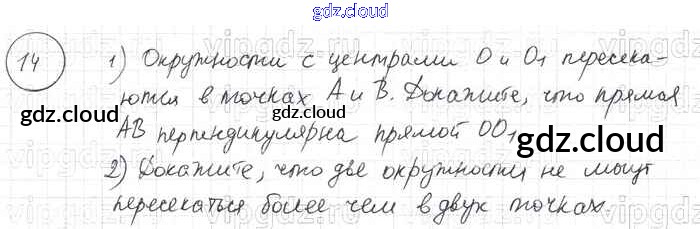 gdz.cloud
14
1) Окружности с центрами O и O₁ пересека-
ются в точках A и B. Докажите, что прямая
AB перпендикулярна прямой OO₁
2) Докажите, что две окружности не могут
пересекаться более чем в двух точках.
gdz.cloud
gdz.cloud
gdz.cloud